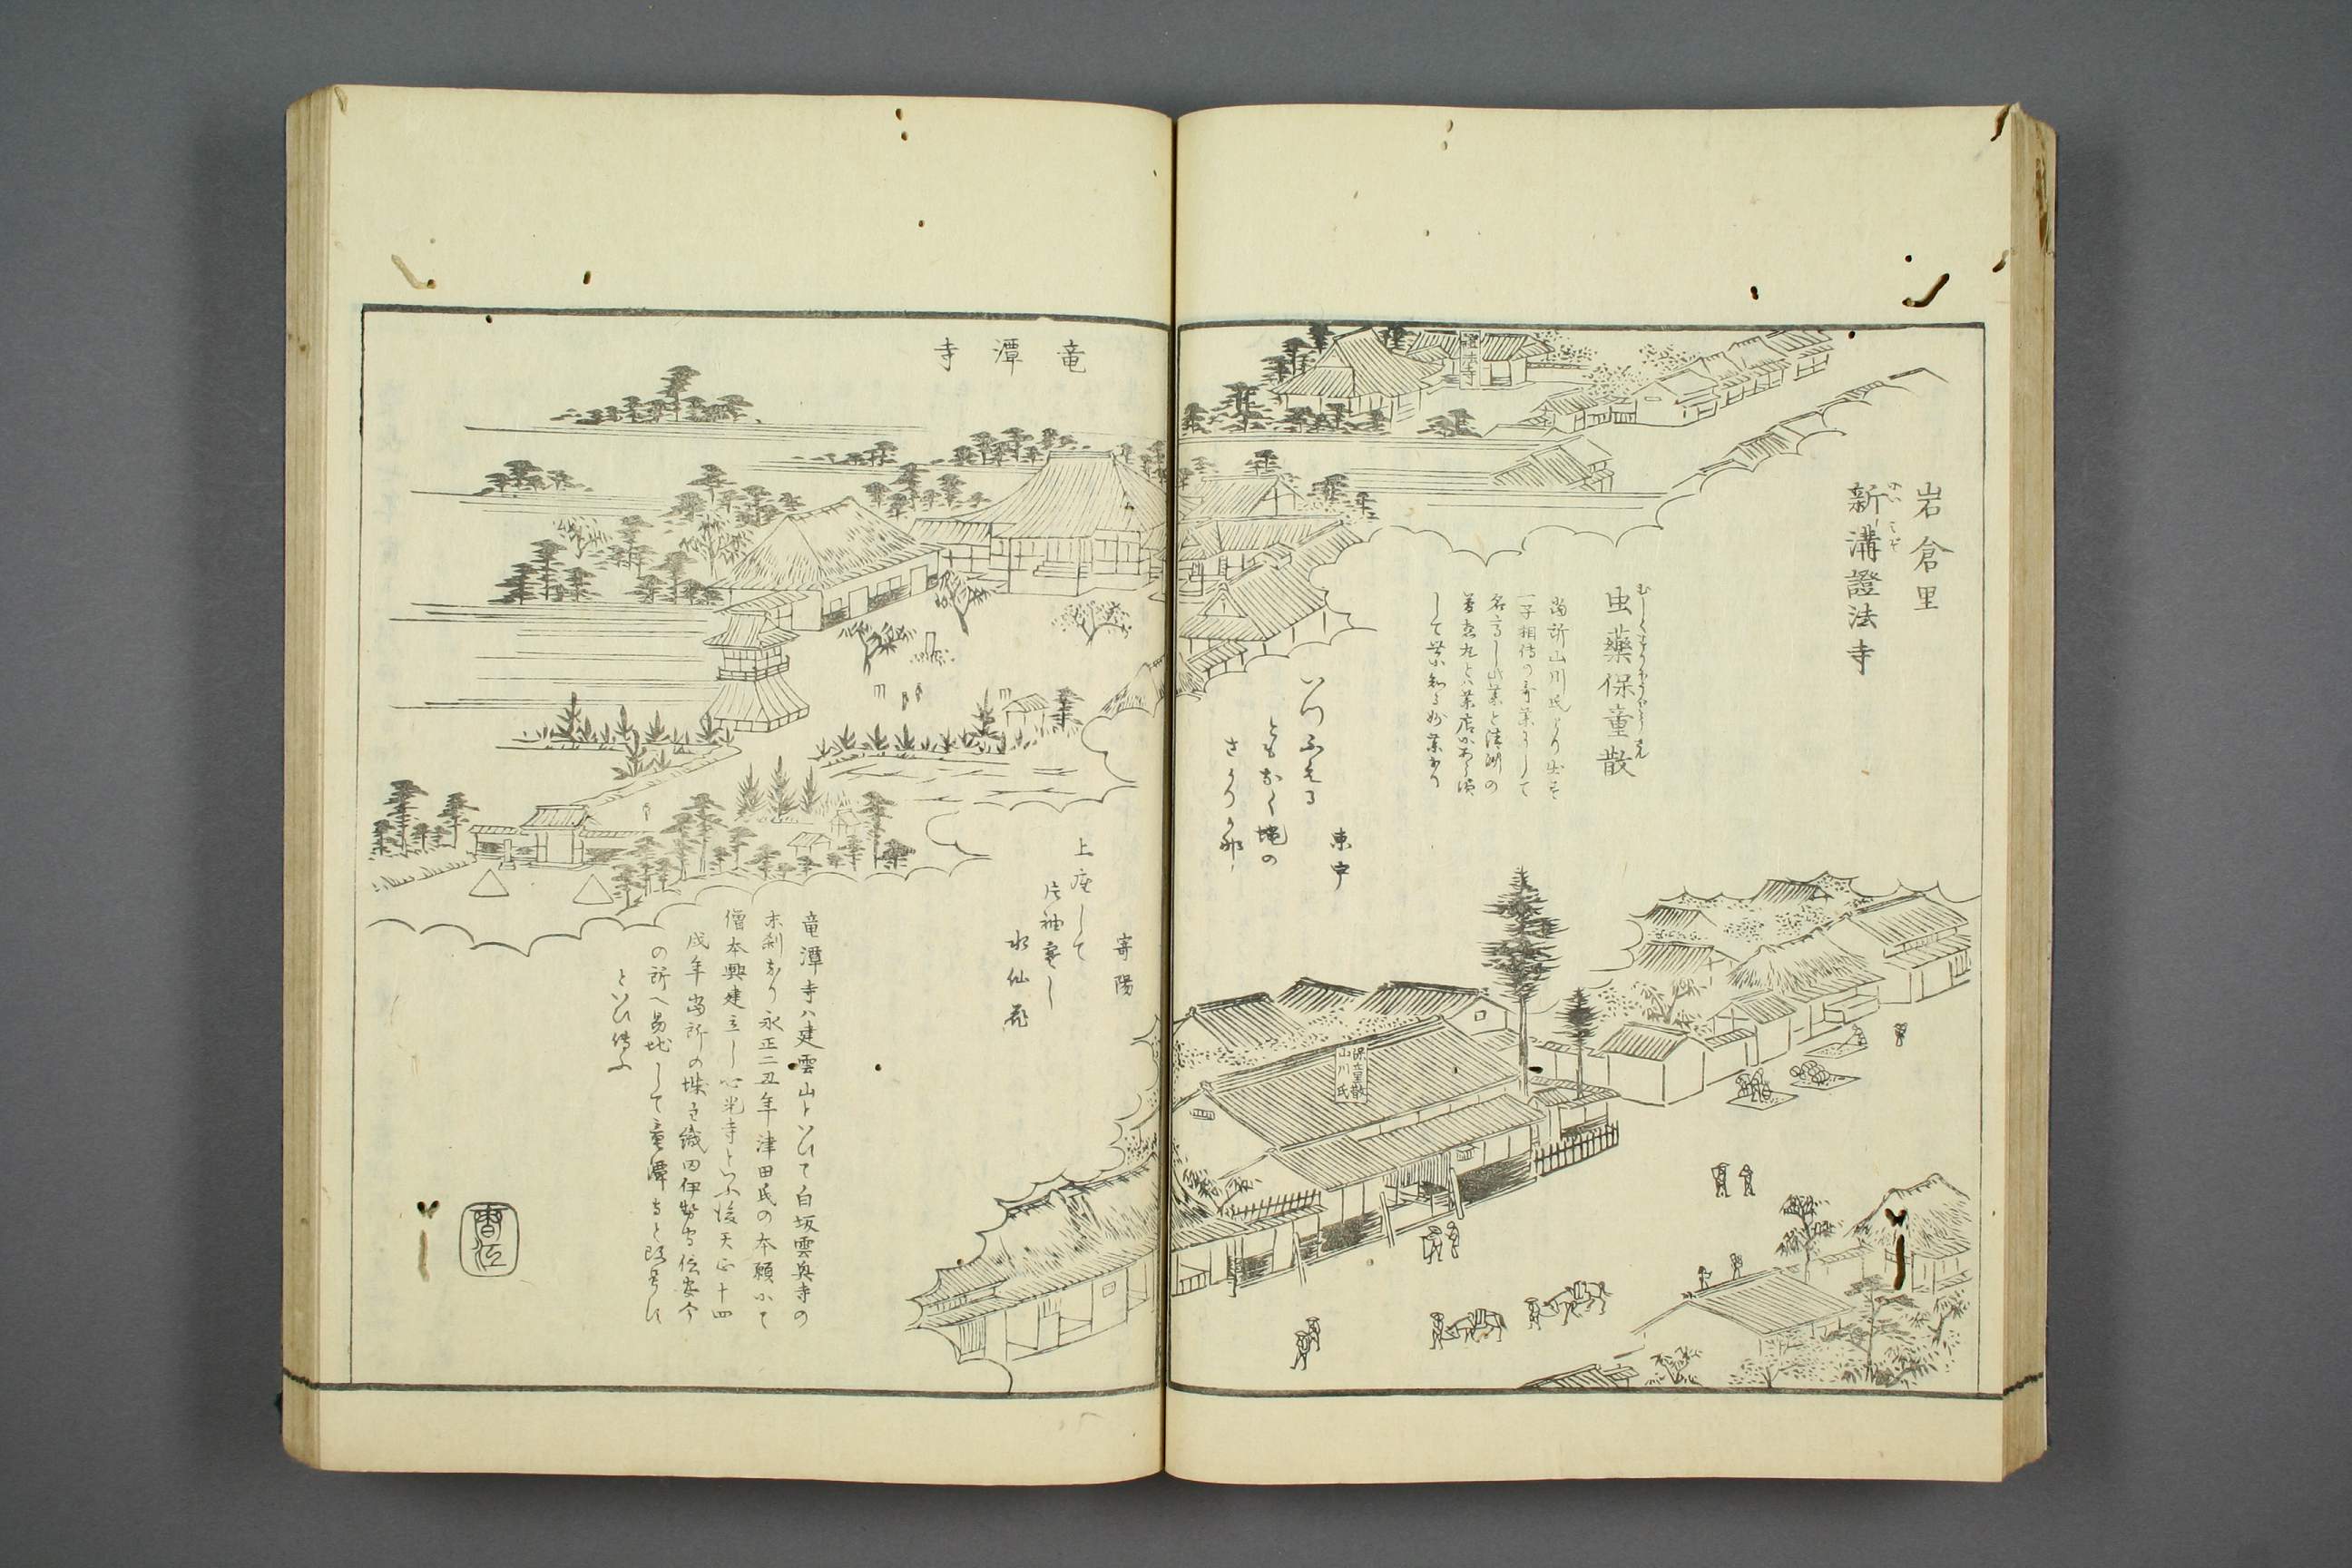 岩倉里
新溝證法寺
證法寺
虫藥保童散
むしくすりほうどうさん
當所山川氏より出す
一子相傳の奇薬にして
名高し此薬と津嶋の
して世に知る妙薬なり
いつふえる
ともなく塊の
さかりかな
東中
保童散
山川氏
竜潭寺
寄陽
上座して
片袖寒し
水仙花
竜潭寺ハ建雲山といひて白坂雲興寺の
末刹なり永正二丑年津田氏の本願にて
僧本興建立し心光寺といふ後天正十四
戌年當所の城主織田伊勢守信安今
の所へ易地して竜潭寺と改号せし
といひ傳ふ